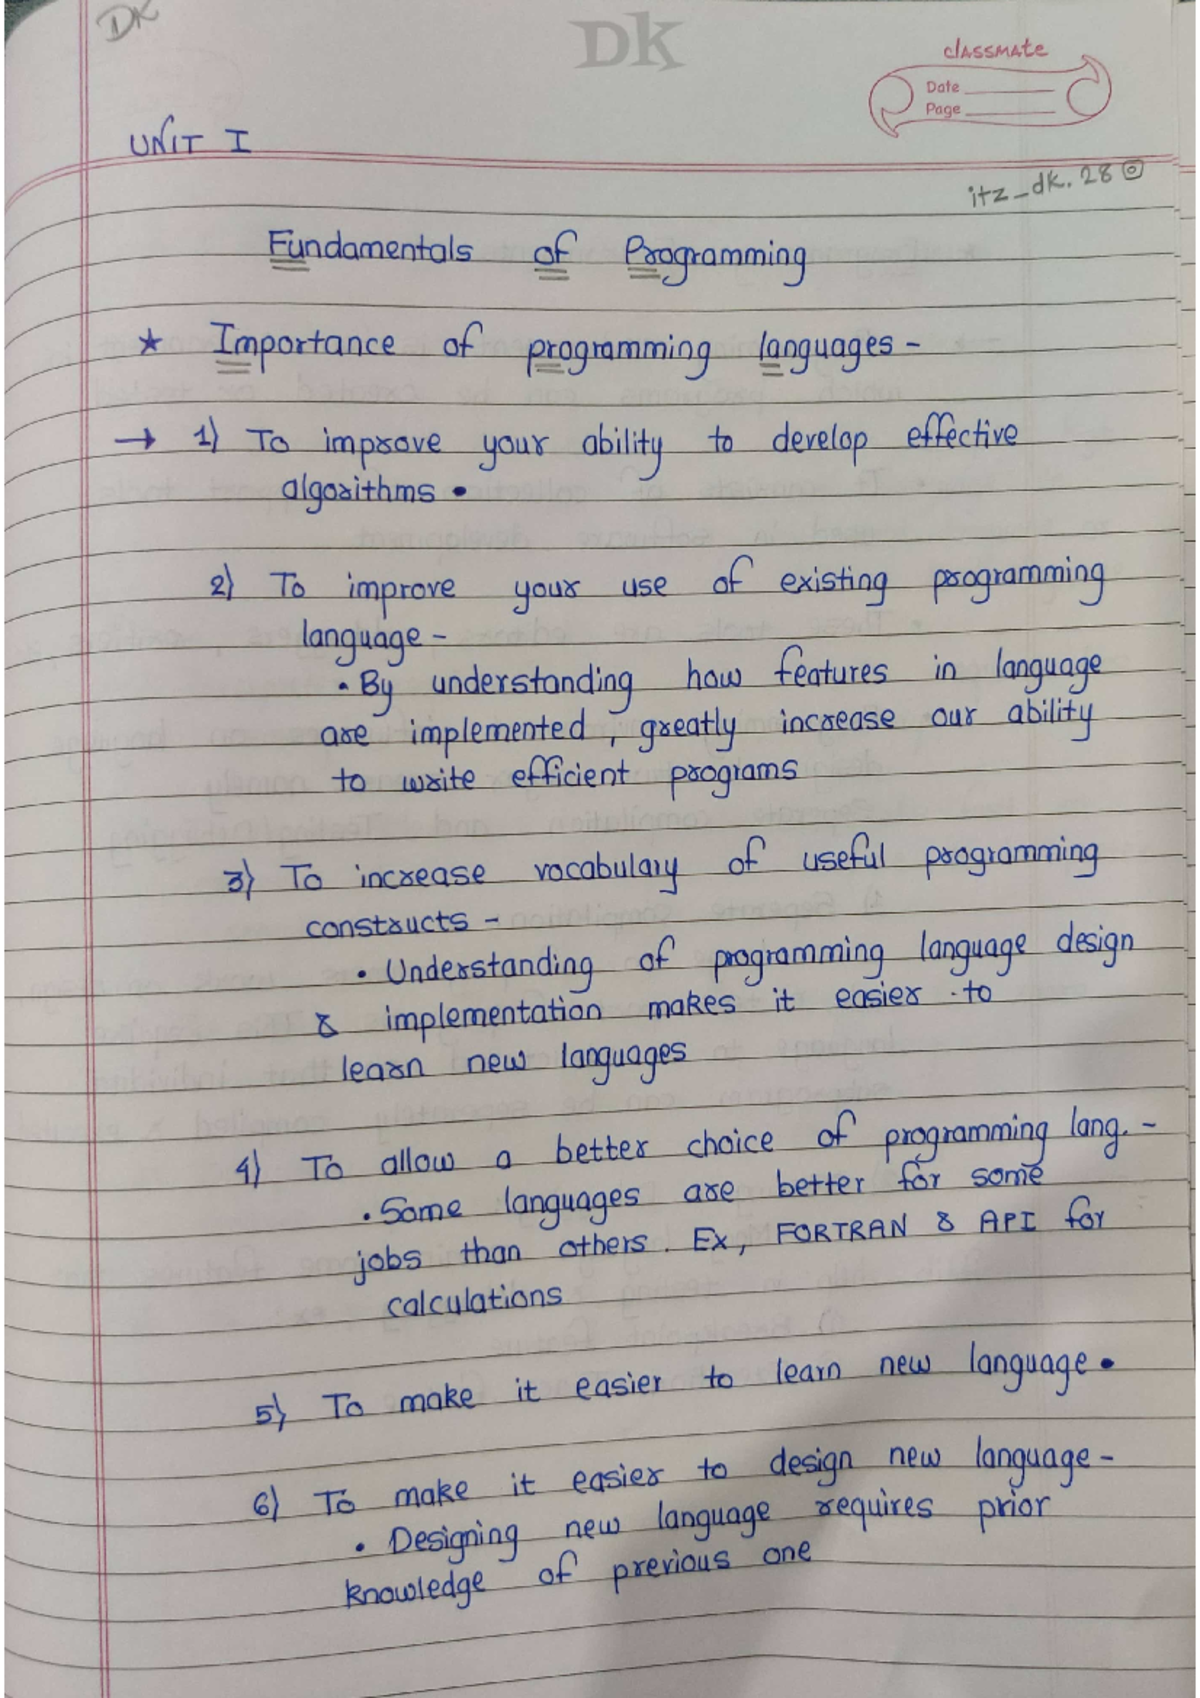 DK
DK
classmate
Date
Page
UNIT I
itz_dk.28
Fundamentals of Programming
★ Importance of programming languages -
→ 1) To improve your ability to develop effective
algorithms •
2) To improve your use of existing programming
language -
• By understanding how features in language
are implemented, greatly increase our ability
to write efficient programs
3) To increase vocabulary of useful programming
constructs -
• Understanding of programming language design
& implementation makes it easier to
learn new languages
4) To allow a better choice of programming lang. -
• Some languages are better for some
jobs than others. Ex, FORTRAN & API for
calculations
5) To make it easier to learn new language •
6) To make it easier to design new language -
• Designing new language requires prior
knowledge of previous one